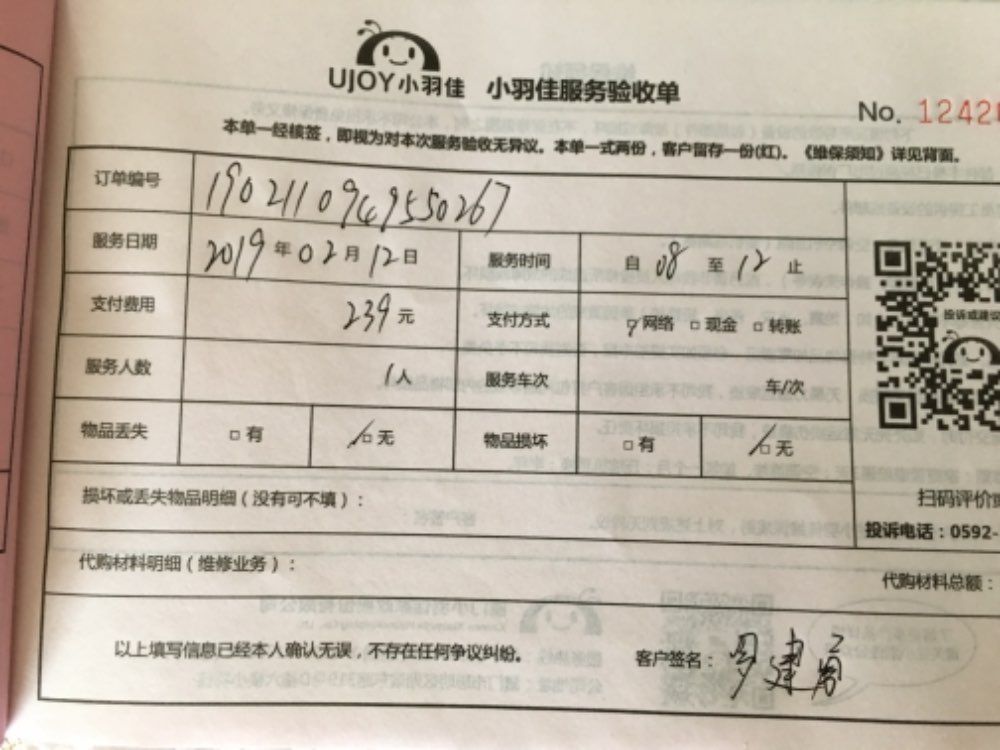 UJOY小羽佳 小羽佳服务验收单
No. 12428
本单一经核签，即视为对本次服务验收无异议。本单一式两份，客户留存一份(红)。《维保须知》详见背面。
订单编号 1902110949550267
服务日期 2019年02月12日 服务时间 自08至12止
支付费用 239元 支付方式 网络 □现金 □转账
投诉或建议
服务人数 1人 服务车次 车/次
物品丢失 □有 □无 物品损坏 □有 □无
损坏或丢失物品明细（没有可不填）：
扫码评价
投诉电话：0592-
代购材料明细（维修业务）：
代购材料总额：
以上填写信息已经本人确认无误，不存在任何争议纠纷。 客户签名：